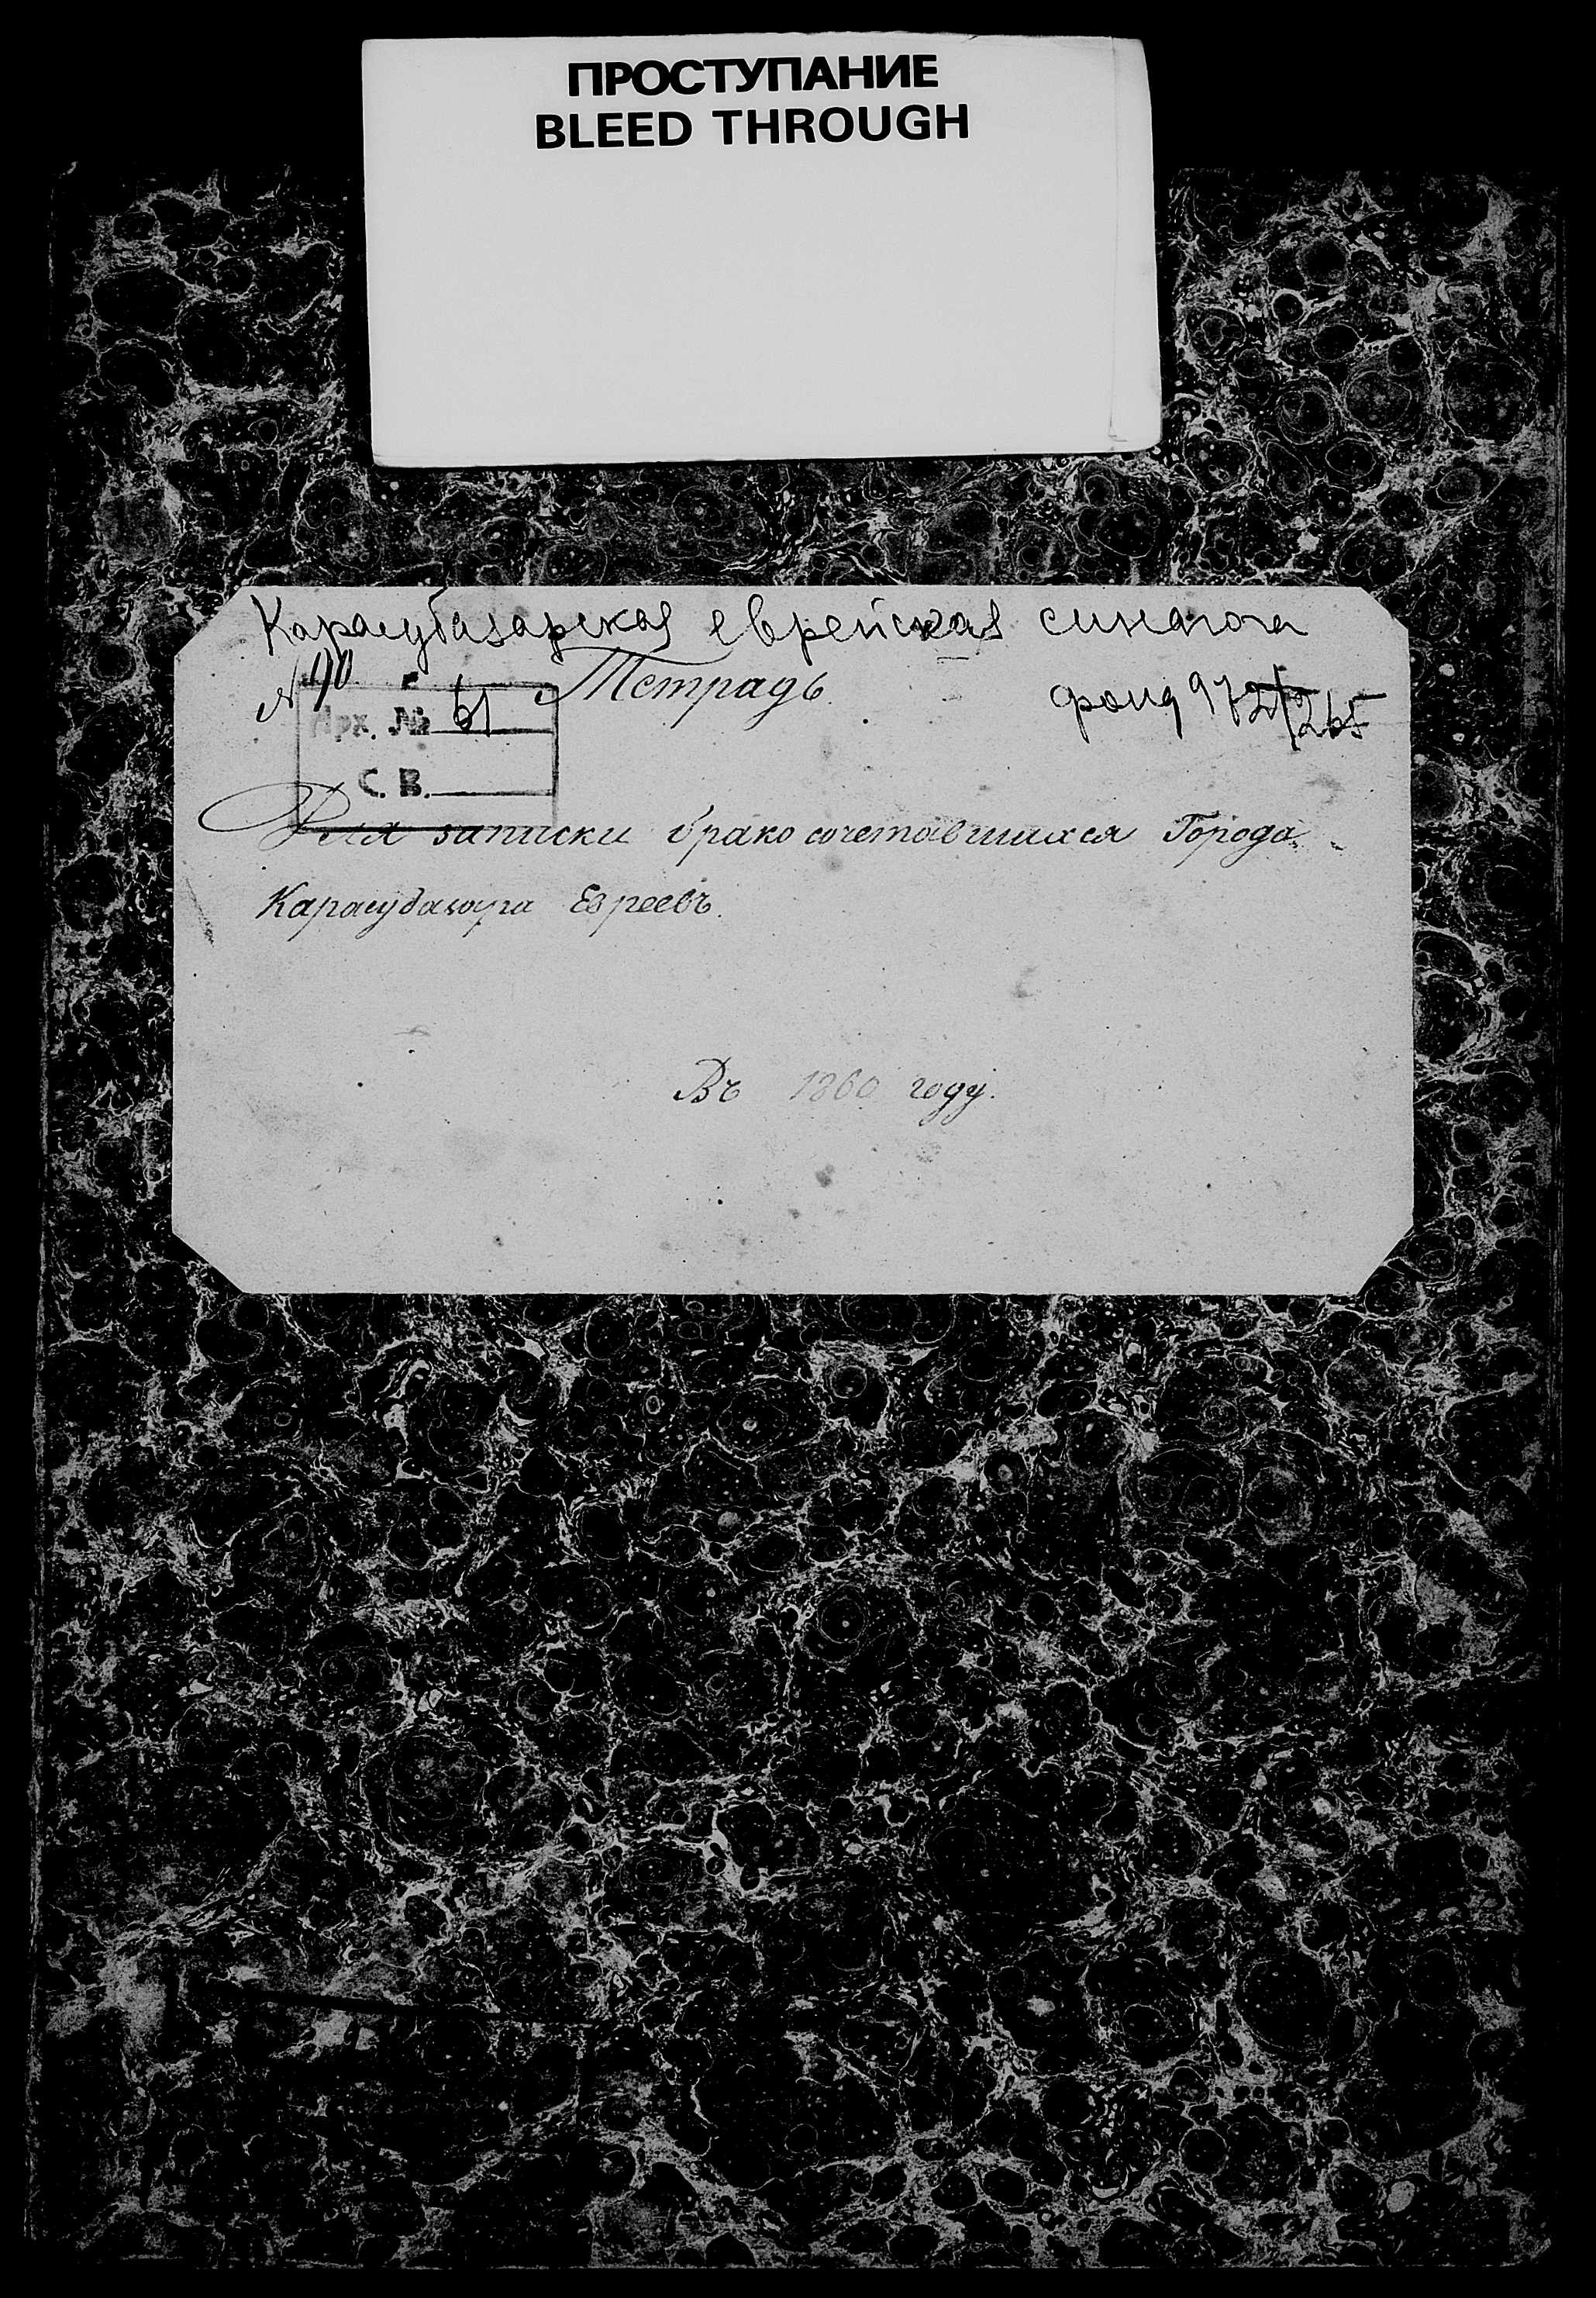 ПРОСТУПАНИЕ
BLEED THROUGH
Карасубазарская еврейская синагога
№ 90
Тетрадь.
фонд 972/265
Арх. № 61
С. В.
Для записки бракосочетавшихся Города
Карасубазара Евреевъ.
Въ 1860 году.